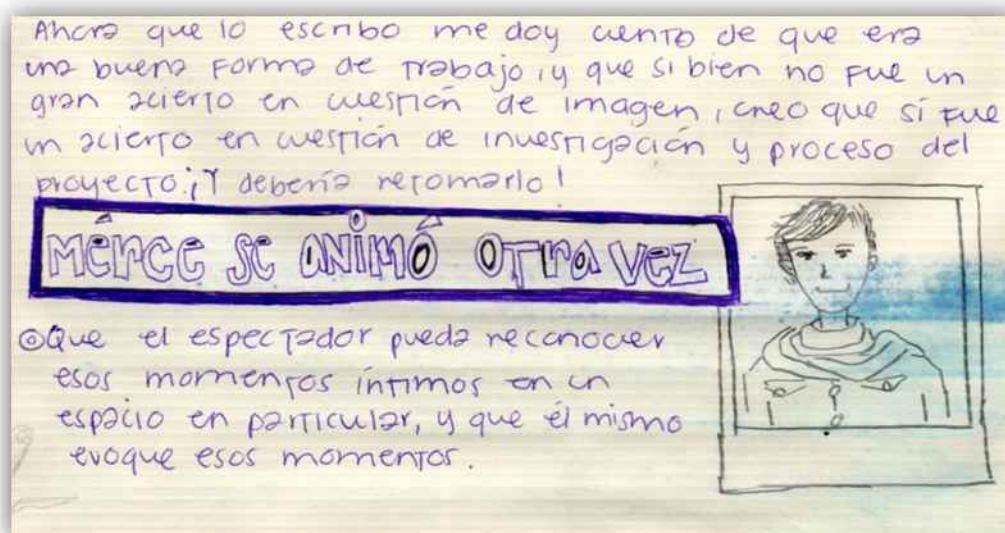 Ahora que lo escribo me doy cuenta de que era
una buena forma de trabajo, y que si bien no fue un
gran acierto en cuestión de imagen, creo que sí fue
un acierto en cuestión de investigación y proceso del
proyecto. ¡Y debería retomarlo!
MÉRCE SE ANIMÓ OTRA VEZ
Que el espectador pueda reconocer
esos momentos íntimos en un
espacio en particular, y que él mismo
evoque esos momentos.